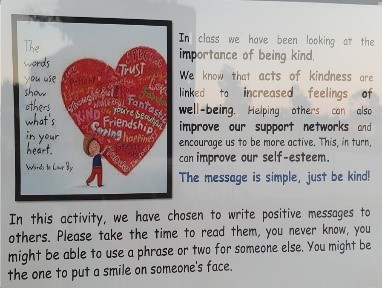 The
words
you use
show
others
what's
in your
heart.
Words to Love By
TRUST
Fantastic
you're beautiful
KIND
Friendship
Caring
happiness
In class we have been looking at the
importance of being kind.
We know that acts of kindness are
linked to increased feelings of
well-being. Helping others can also
improve our support networks and
encourage us to be more active. This, in turn,
can improve our self-esteem.
The message is simple, just be kind!
In this activity, we have chosen to write positive messages to
others. Please take the time to read them, you never know, you
might be able to use a phrase or two for someone else. You might be
the one to put a smile on someone's face.